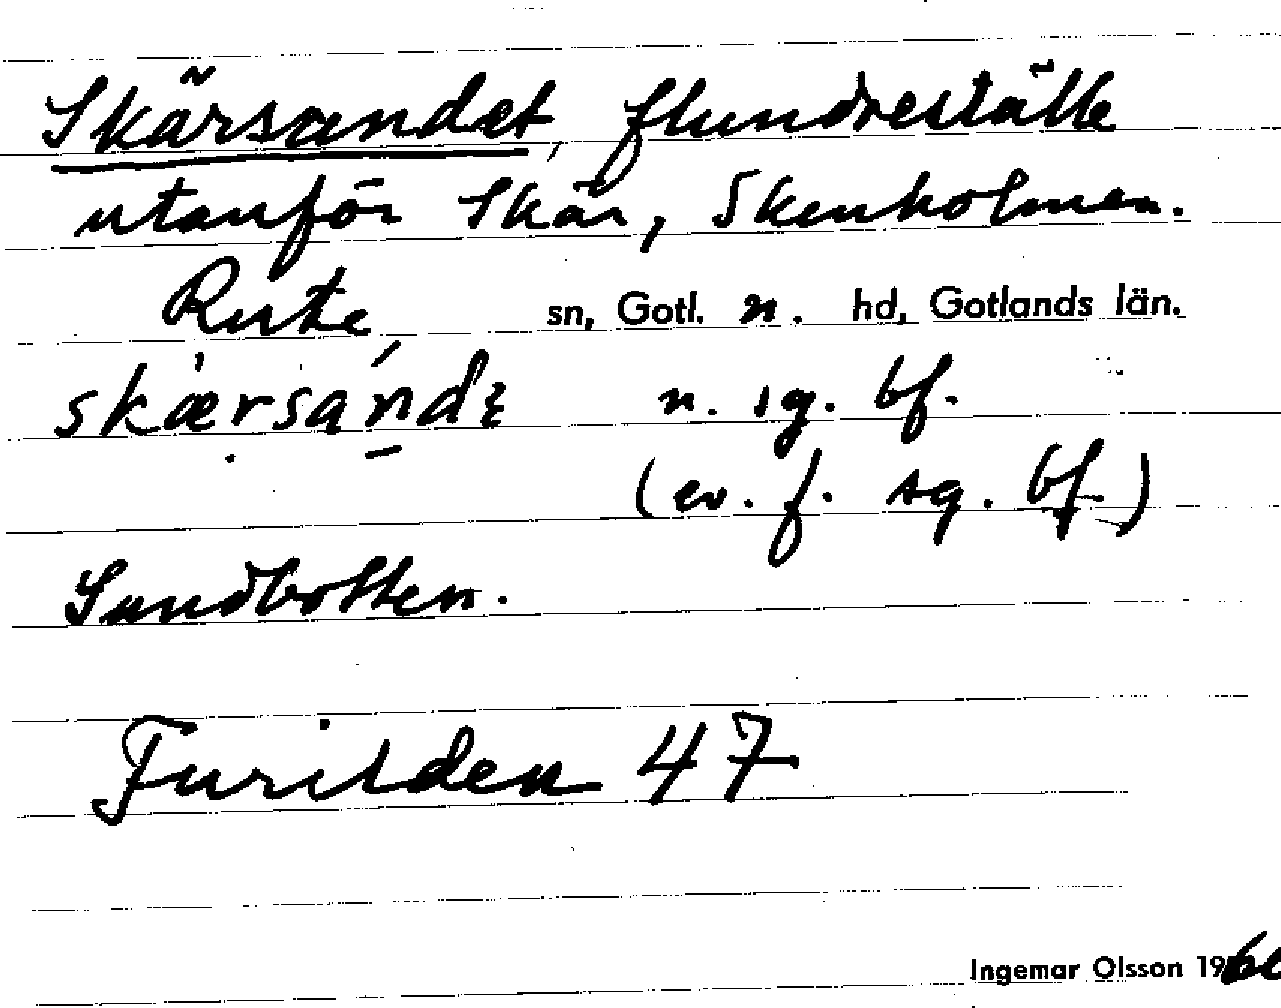 Skärsandet, flundreställe
utanför Skär, Skenholmen.
Rute sn, Gotl. n. hd, Gotlands län.
skærsand n. sg. bf.
(ev. f. sg. bf.)
Sandbotten.
Furilden 47
Ingemar Olsson 19